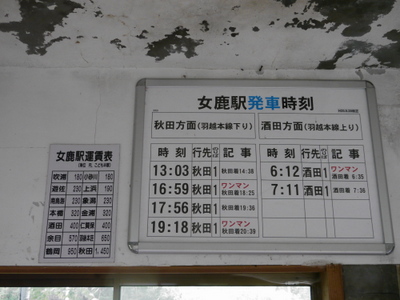 女鹿駅発車時刻
秋田方面(羽越本線下り)
時刻 行先 記事
13:03 秋田 1 秋田着14:38
16:59 秋田 1 ワンマン 秋田着18:25
17:56 秋田 1 秋田着19:36
19:18 秋田 1 ワンマン 秋田着20:39
酒田方面(羽越本線上り)
時刻 行先 記事
6:12 酒田 1 ワンマン 酒田着 6:35
7:11 酒田 1 酒田着 7:36
女鹿駅運賃表
吹浦 180 小砂川 180
遊佐 230 上浜 190
南鳥海 230 象潟 230
本楯 320 金浦 320
酒田 400 仁賀保 400
余目 570
鶴岡 650 秋田 1,450